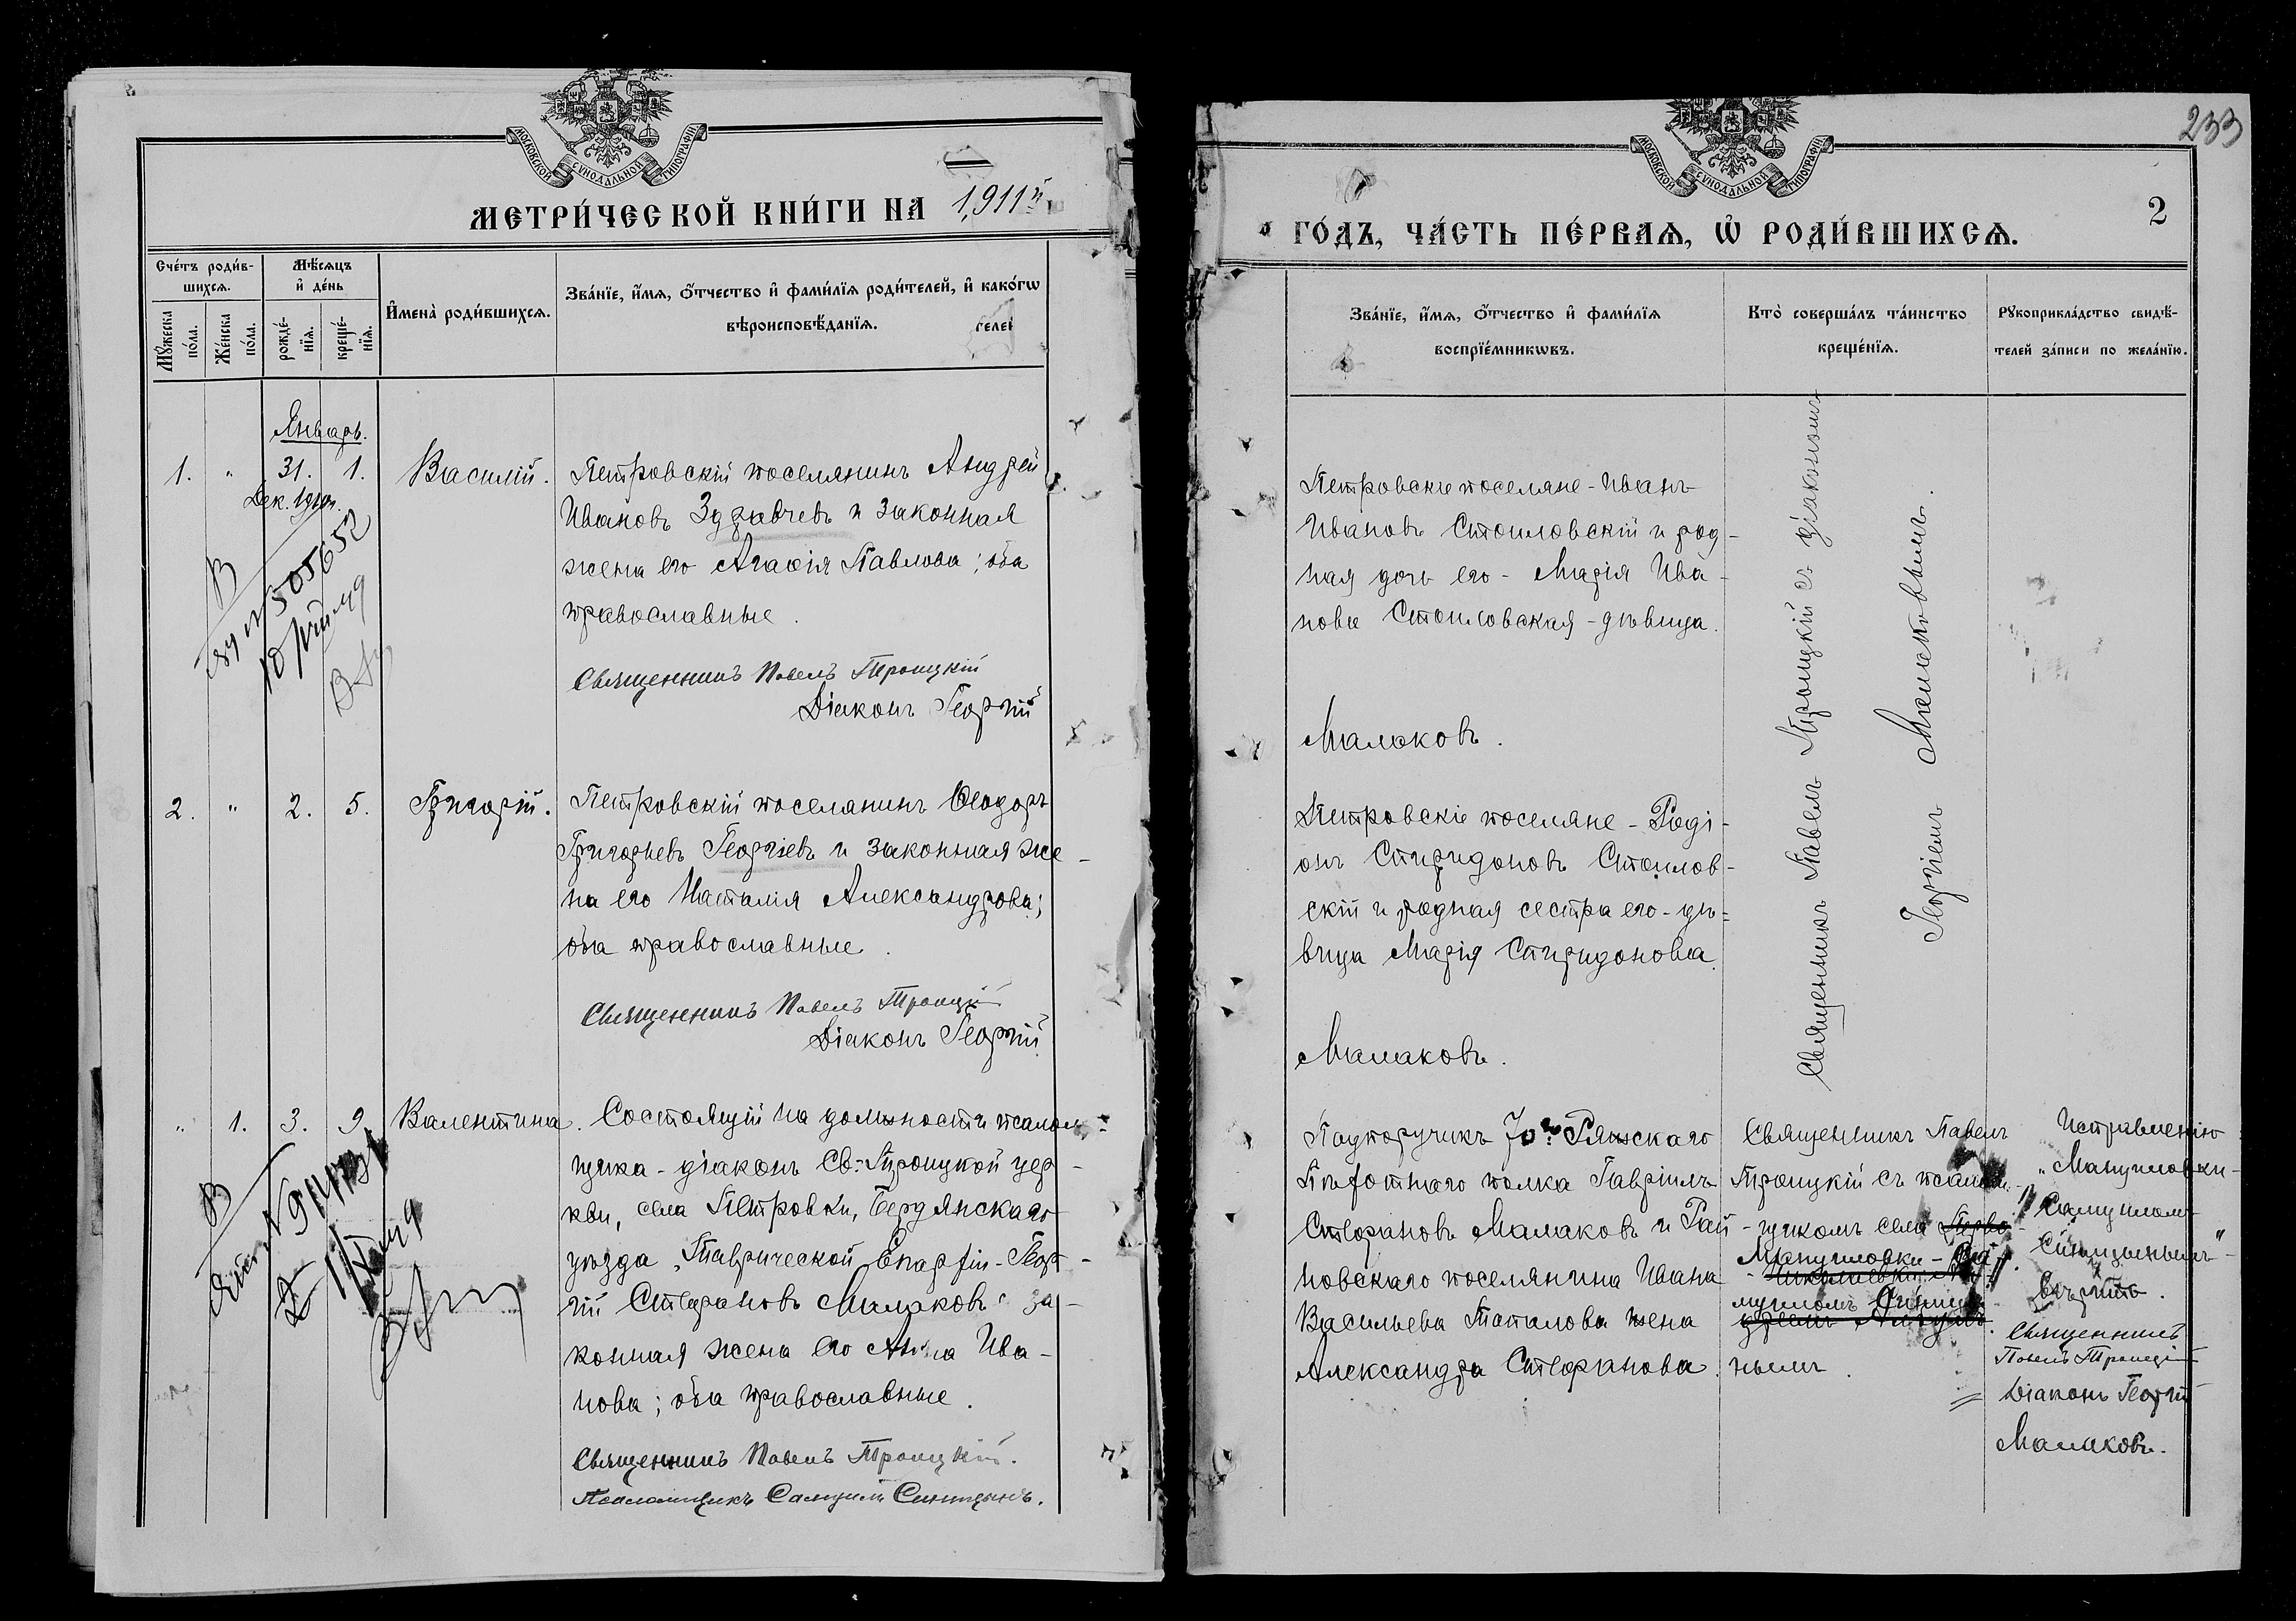 МОСКОВСКОЙ СУНОДАЛЬНОЙ ТИПОГРАФІИ
МЕТРИ́ЧЕСКОЙ КНИ́ГИ НА 1,911й
Сче́тъ роди́в-
шихсѧ.
Мѣ́сѧцъ
и҆ де́нь
Мꙋ́жеска
по́ла.
Же́нска
по́ла.
рожде́-
нїѧ.
креще́-
нїѧ.
И҆мена̀ роди́вшихсѧ.
Зва́нїе, и҆́мѧ, ѻ҆́тчество и҆ фами́лїѧ роди́телей, и҆ како́гѡ
вѣроисповѣ́данїѧ.
Январь.
1. " 31. 1. Василій.
Дек. 1910 г.
Петровскій поселянинъ Андрей
Ивановъ Здравчевъ и законная
жена его Агафія Павлова; оба
православные.
Священникъ Павелъ Троицкій
Діаконъ Георгій
2. " 2. 5. Григорій.
Петровскій поселянинъ Ѳеодоръ
Григорьевъ Георгіевъ и законная же-
на его Наталія Александрова;
оба православные.
Священникъ Павелъ Троицкій
Діаконъ Георгій
" 1. 3. 9. Валентина.
Состоящій на должности псалом-
щика - діаконъ Св.-Троицкой цер-
кви, села Петровки, Бердянскаго
уѣзда, Таврической Епархіи - Геор-
гій Стефановъ Малаковъ и за-
конная жена его Анна Ива-
нова; оба православные.
Священникъ Павелъ Троицкій.
Псаломщикъ Самуилъ Синицынъ.
233
МОСКОВСКОЙ СУНОДАЛЬНОЙ ТИПОГРАФІИ
2
ГО́ДЪ, ЧА́СТЬ ПЕ́РВАѦ, Ѡ҆ РОДИ́ВШИХСѦ.
Зва́нїе, и҆́мѧ, ѻ҆́тчество и҆ фами́лїѧ
воспрїе́мникѡвъ.
Кто̀ соверша́лъ та́инство
креще́нїѧ.
Рꙋкоприкла́дство свидѣ́-
телей за́писи по жела́нїю.
Петровскіе поселяне - Иванъ
Ивановъ Стоиловскій и род-
ная дочь его - Марія Ива-
нова Стоиловская - дѣвица.
Малаковъ.
Петровскіе поселяне - Родi-
онъ Спиридоновъ Стоилов-
скій и родная сестра его - дѣ-
вица Марія Спиридонова.
Малаковъ.
Священникъ Павелъ Троицкій съ діакономъ
Георгіемъ Малаковымъ.
Подпоручикъ 70го Ряжскаго
Пѣхотнаго полка Гавріилъ
Стефановъ Малаковъ и Рай-
новскаго поселянина Ивана
Васильева Таталова жена
Александра Стефанова.
Священникъ Павелъ
Троицкій съ псалом-
щикомъ села
Мануиловки -
муиломъ Синицы-
нымъ.
Исправленію
„Мануиловки -
Самуиломъ
Синицынымъ"
вѣрить.
Священникъ
Павелъ Троицкій
Діаконъ Георгій
Малаковъ.